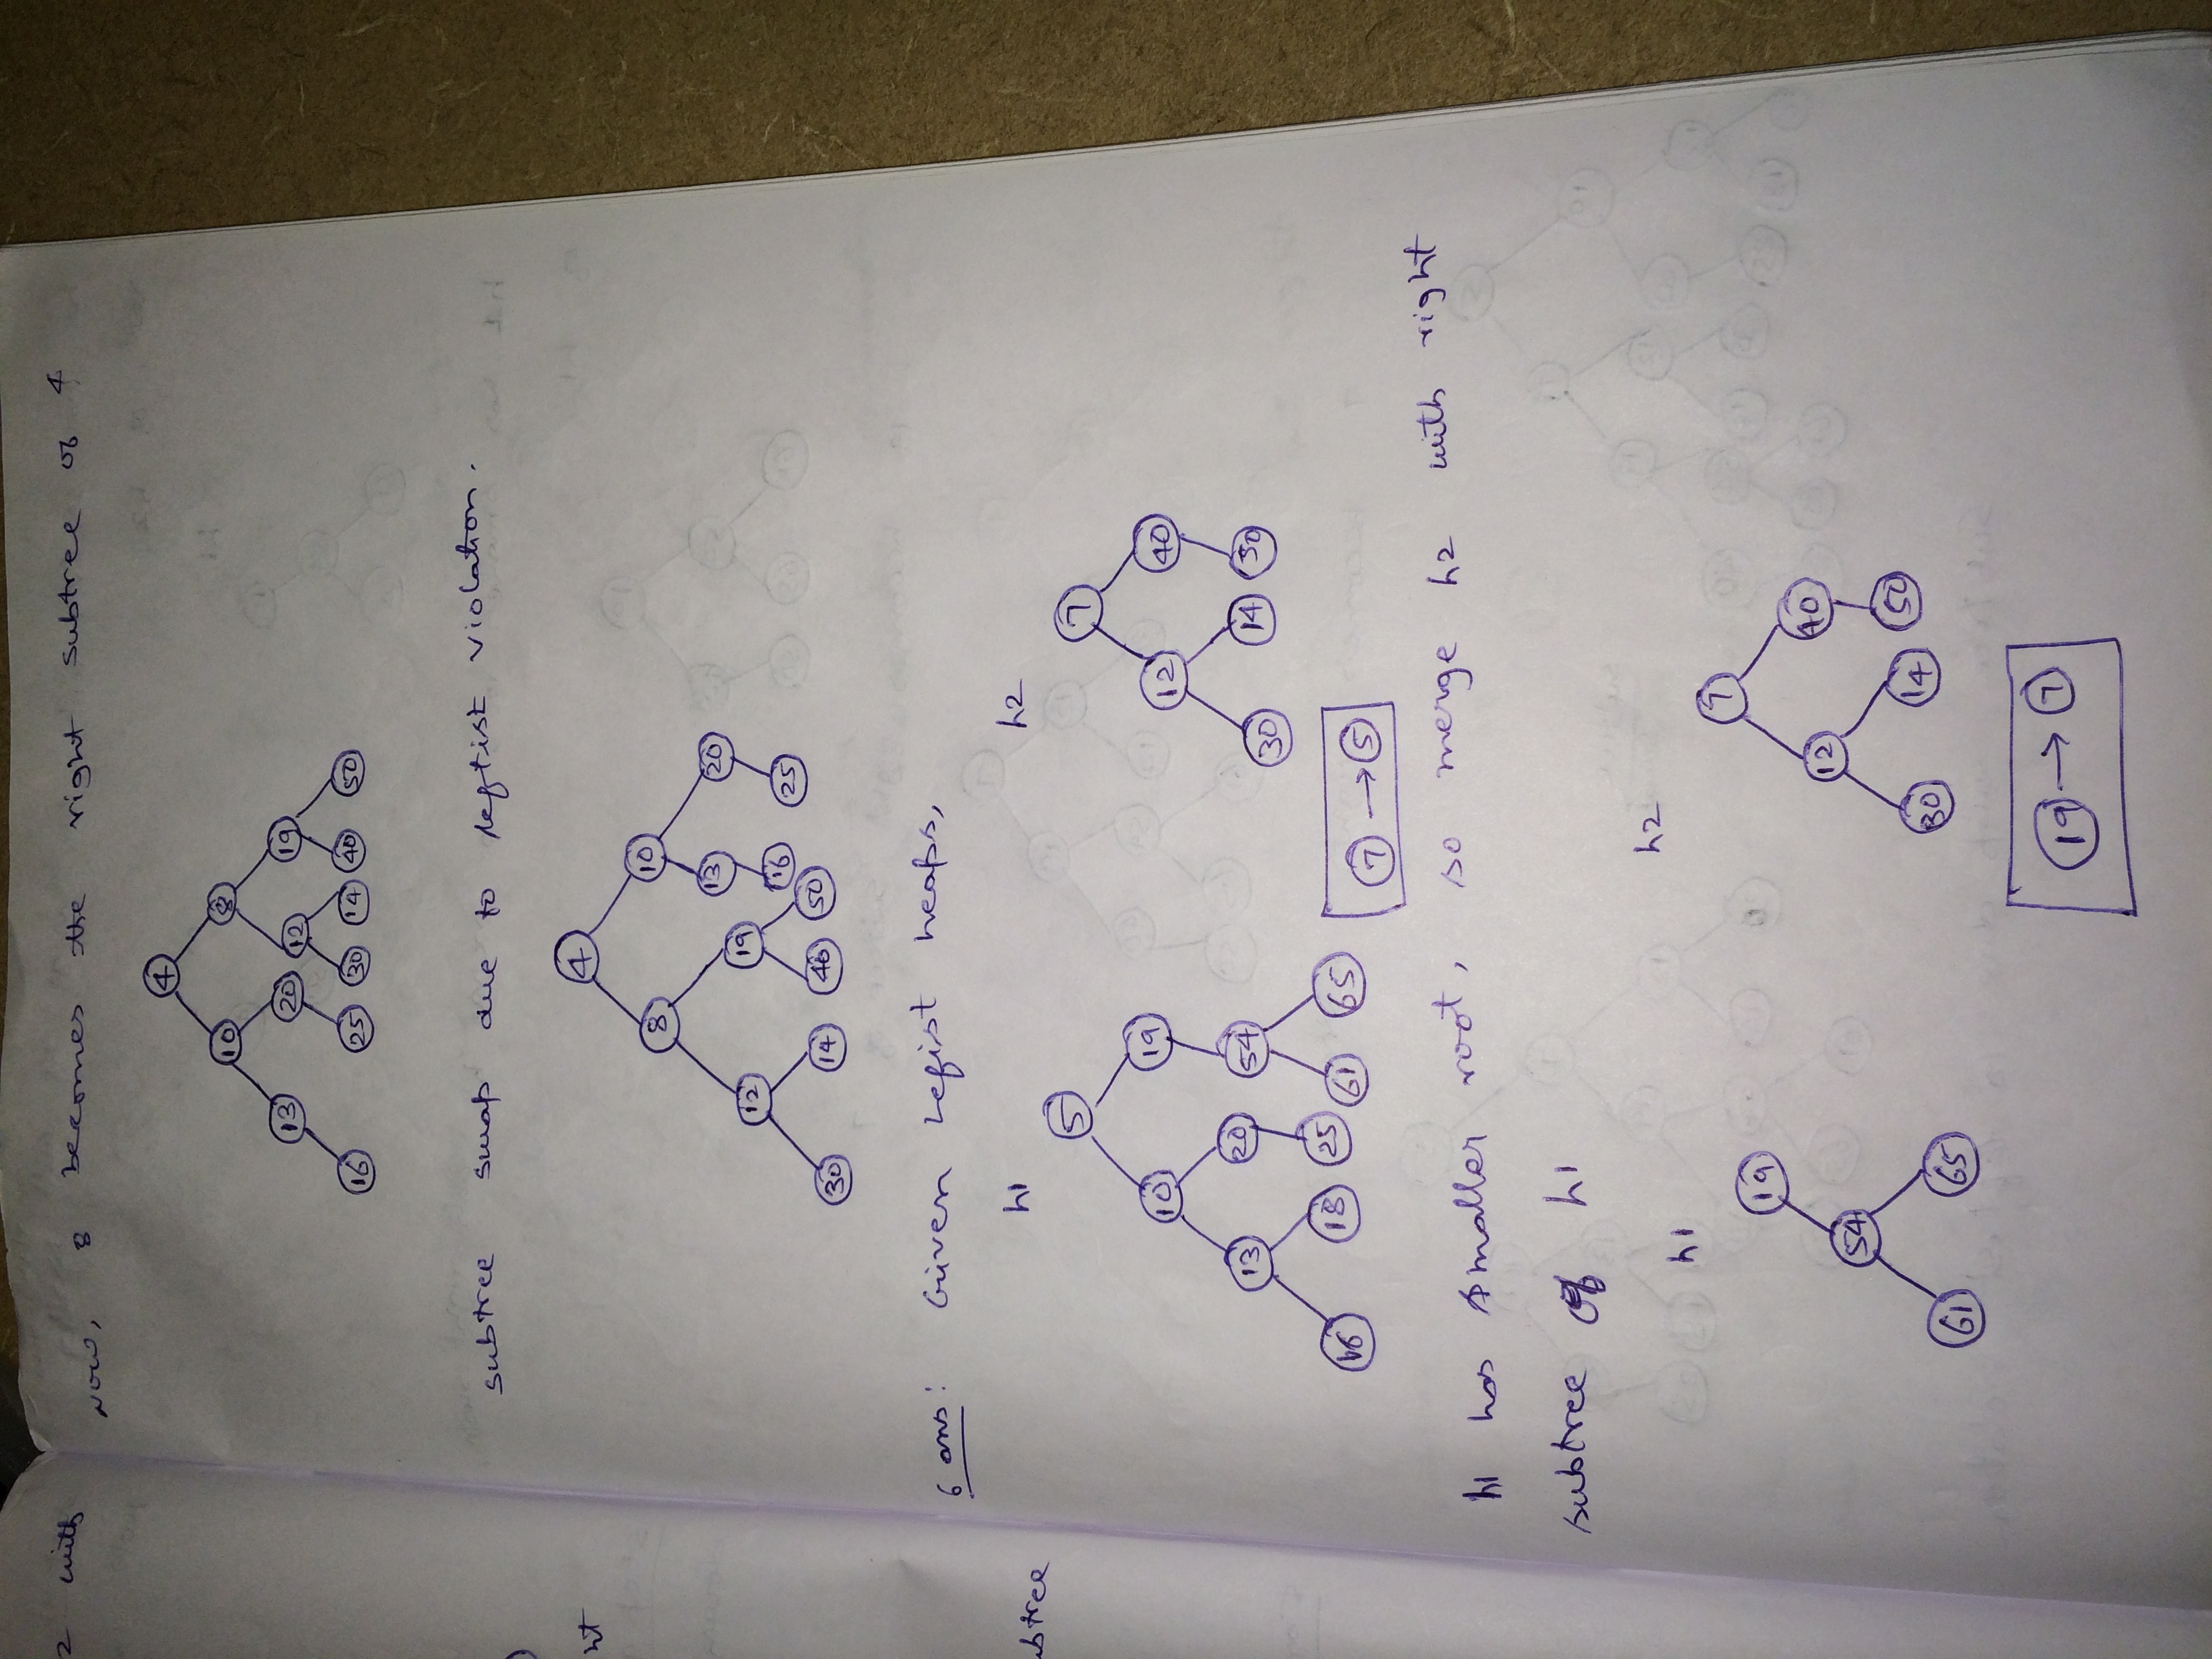 2 with
ht
ubtree
Now, 8 becomes the right subtree of 4
4
10 8
13 20 12 19
16 25 30 14 40 50
subtree swap due to leftist violation.
4
8 10
12 19 13 20
30 14 40 50 16 25
6 ans: Given Lefist heaps,
h1 h2
5 7
10 19 12 40
13 20 54 30 14 50
16 18 25 61 65
7 → 5
h1 has smaller root, so merge h2 with right
subtree of h1
h1 h2
19 7
54 12 40
61 65 30 14 50
19 → 7